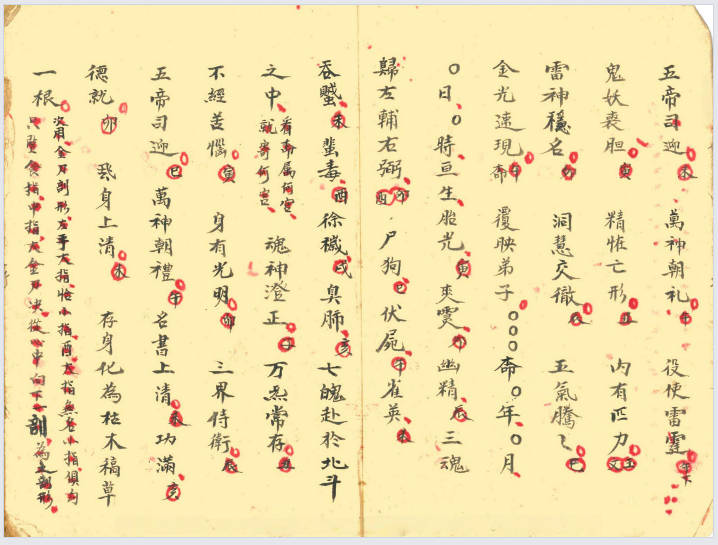 五帝司迎 未 萬神朝礼 午 役使雷霆
鬼妖喪胆 寅 精怪亡形 丑 内有匹力
雷神穏名 卯 洞慧交徹 辰 五氣騰〻 巳
金光速現 命 午 覆映弟子 〇〇〇 命 〇年 〇月
〇日 〇時亘生 胎光 寅 爽靈 卯 幽精 辰 三魂
歸左輔右弼 卯 酉 尸狗 巳 伏屍 午 雀英 未
吞賊 未 蜚毒 酉 徐穢 戌 臭肺 亥 七魄赴於北斗
之中 看事属何宮 就寄何宮 魂神澄正 万炁常存 丑
不經苦惱 寅 身有光明 卯 三界侍衛 辰
五帝司迎 巳 萬神朝禮 午 名書上清 未 功滿 亥
德就 卯 我身上清 未 存身化為枯木稿草
一根 次用金刀剖形左手大指 小指酉大指 小指俱
只竪食指中指 金刀决從心中向下 剖 為之剖形